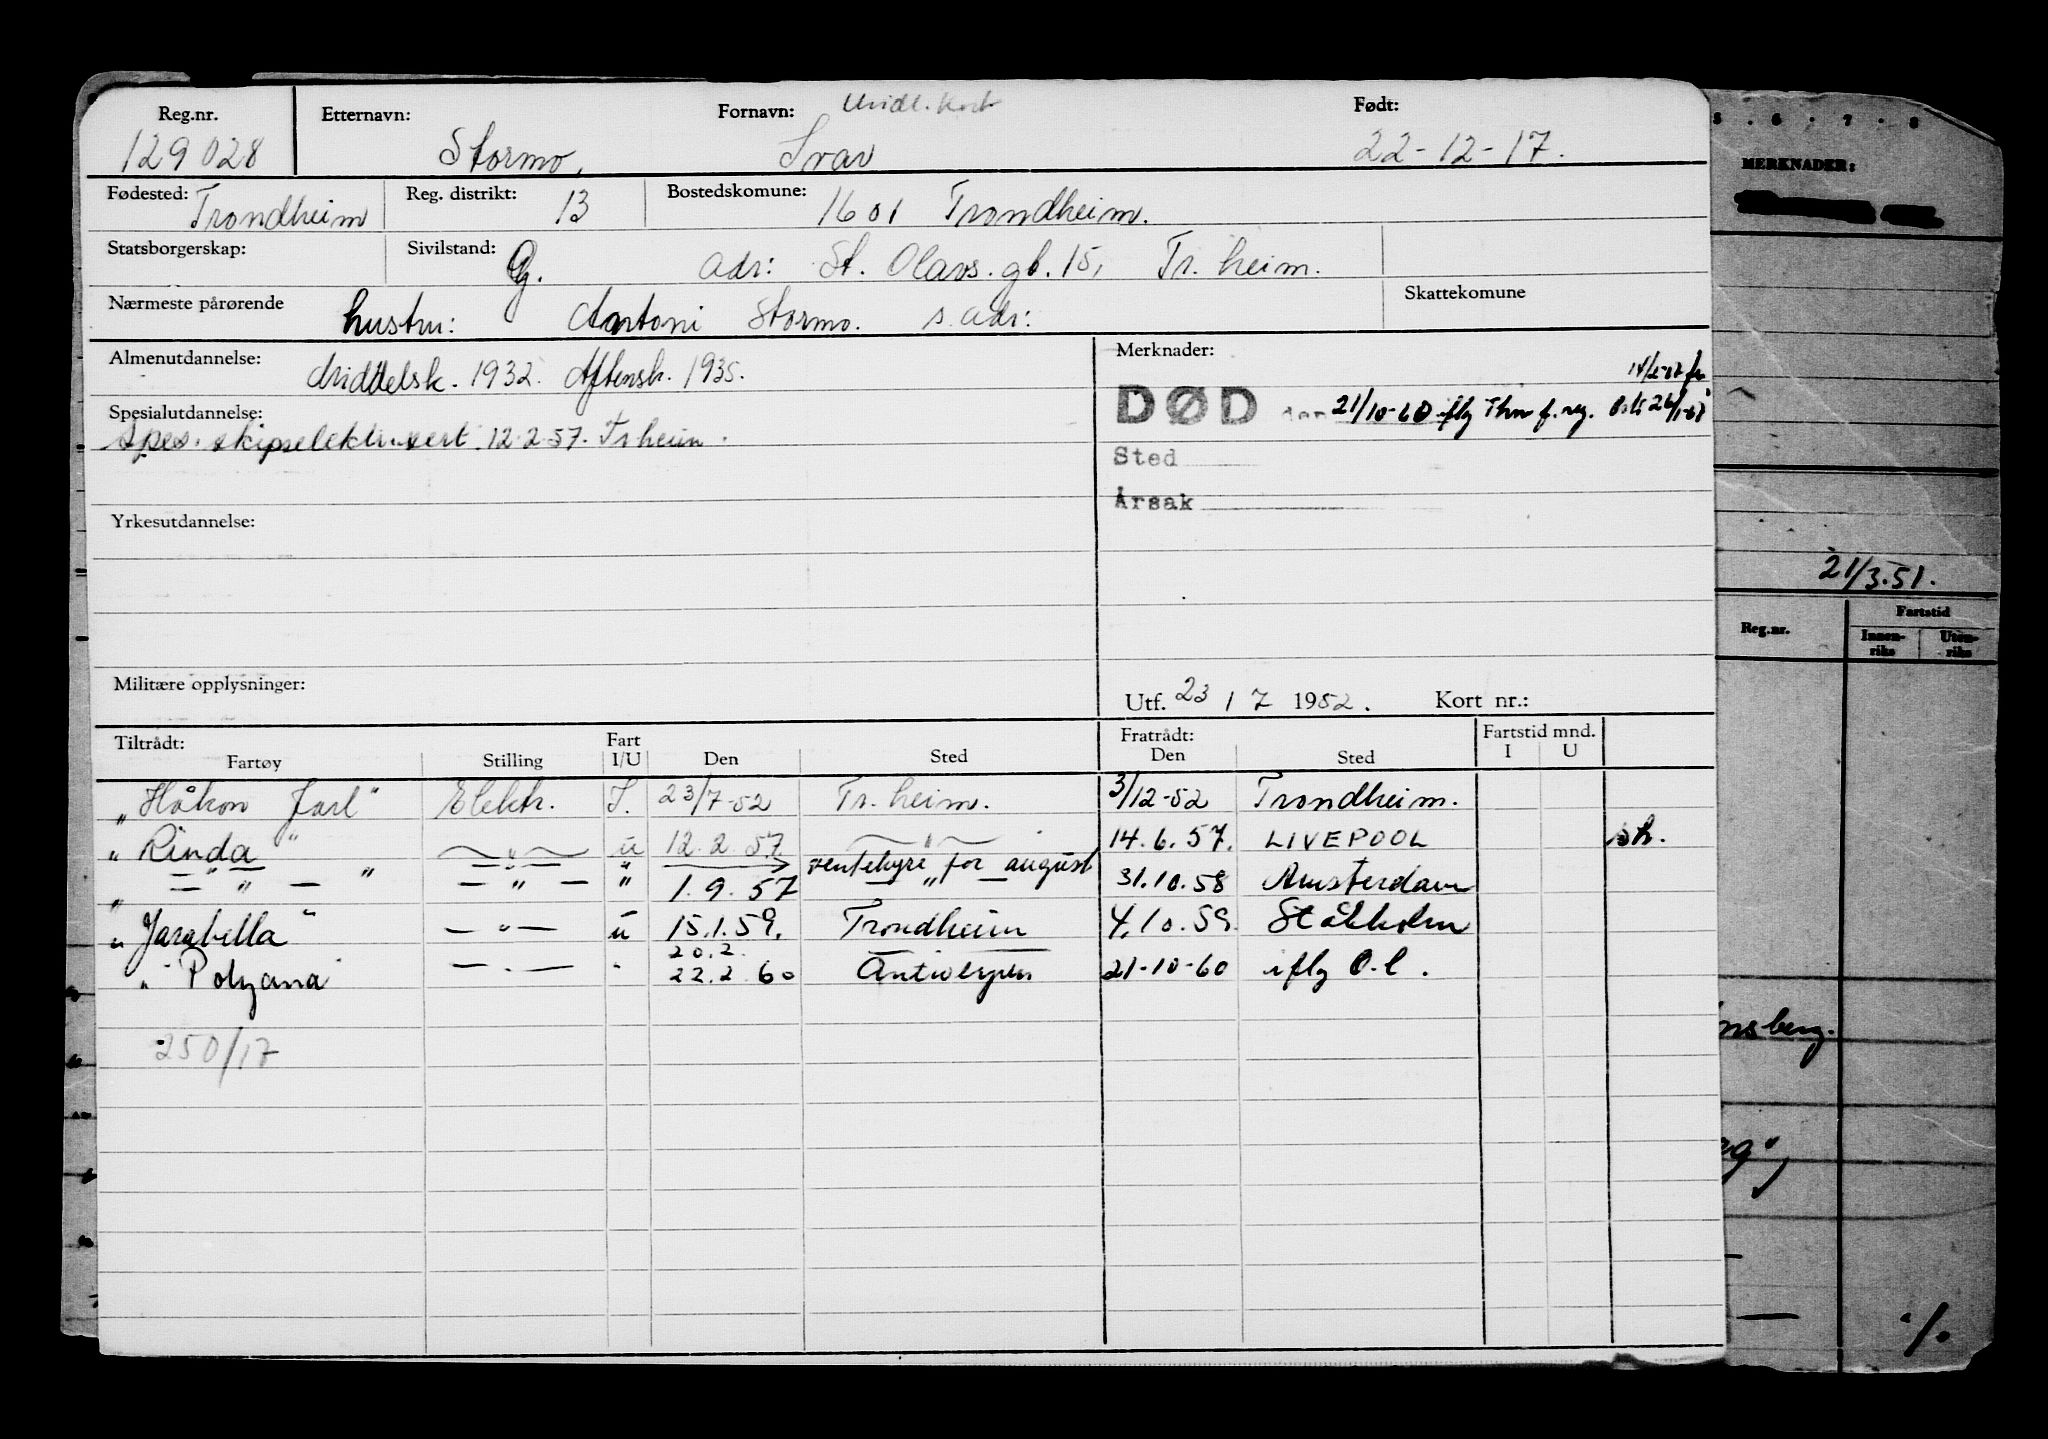 Reg.nr. Etternavn: Fornavn: Midl. kort Født:
129028 Stormo, Ivar 22-12-17.
Fødested: Trondheim Reg. distrikt: 13 Bostedskomune: 1601 Trondheim.
Statsborgerskap: Sivilstand: G. adr: St. Olavs. gt. 15, Tr. heim.
Nærmeste pårørende hustru: Antoni Stormo. s. adr: Skattekomune
Almenutdannelse: Middelsk. 1932. Aftensk. 1935.
Merknader:
DØD den 21/10-60 iflg Thm f. reg.
Spesialutdannelse:
Spes. skipselektr.sert. 12.2.57. Trheim.
Sted
Årsak
Yrkesutdannelse:
Militære opplysninger:
Utf. 23 / 7 1952. Kort nr.:
Tiltrådt: Fart Fratrådt: Fartstid mnd.
Fartøy Stilling I/U Den Sted Den Sted I U
"Håkon Jarl" Elektr. I. 23/7-52 Tr. heim. 3/12-52 Trondheim.
"Rinda" — " — u 12.2.57. — " — 14.6.57. LIVEPOOL sk.
ventehyre for august
" — " — " — " — " 1.9.57 — " — 31.10.58 Amsterdam
"Jarabella" — " — u 15.1.59. Trondheim 4.10.59. Stålkholm
20.2.
"Polyana" — " — " 22.2.60 Antwerpen 21-10-60 iflg O.l.
250/17
5 . 6 . 7 . 8
MERKNADER:
21/3.51.
Reg.nr. Fartstid
Innen-riks Uten-riks
nsberg.
rg",
— ./.